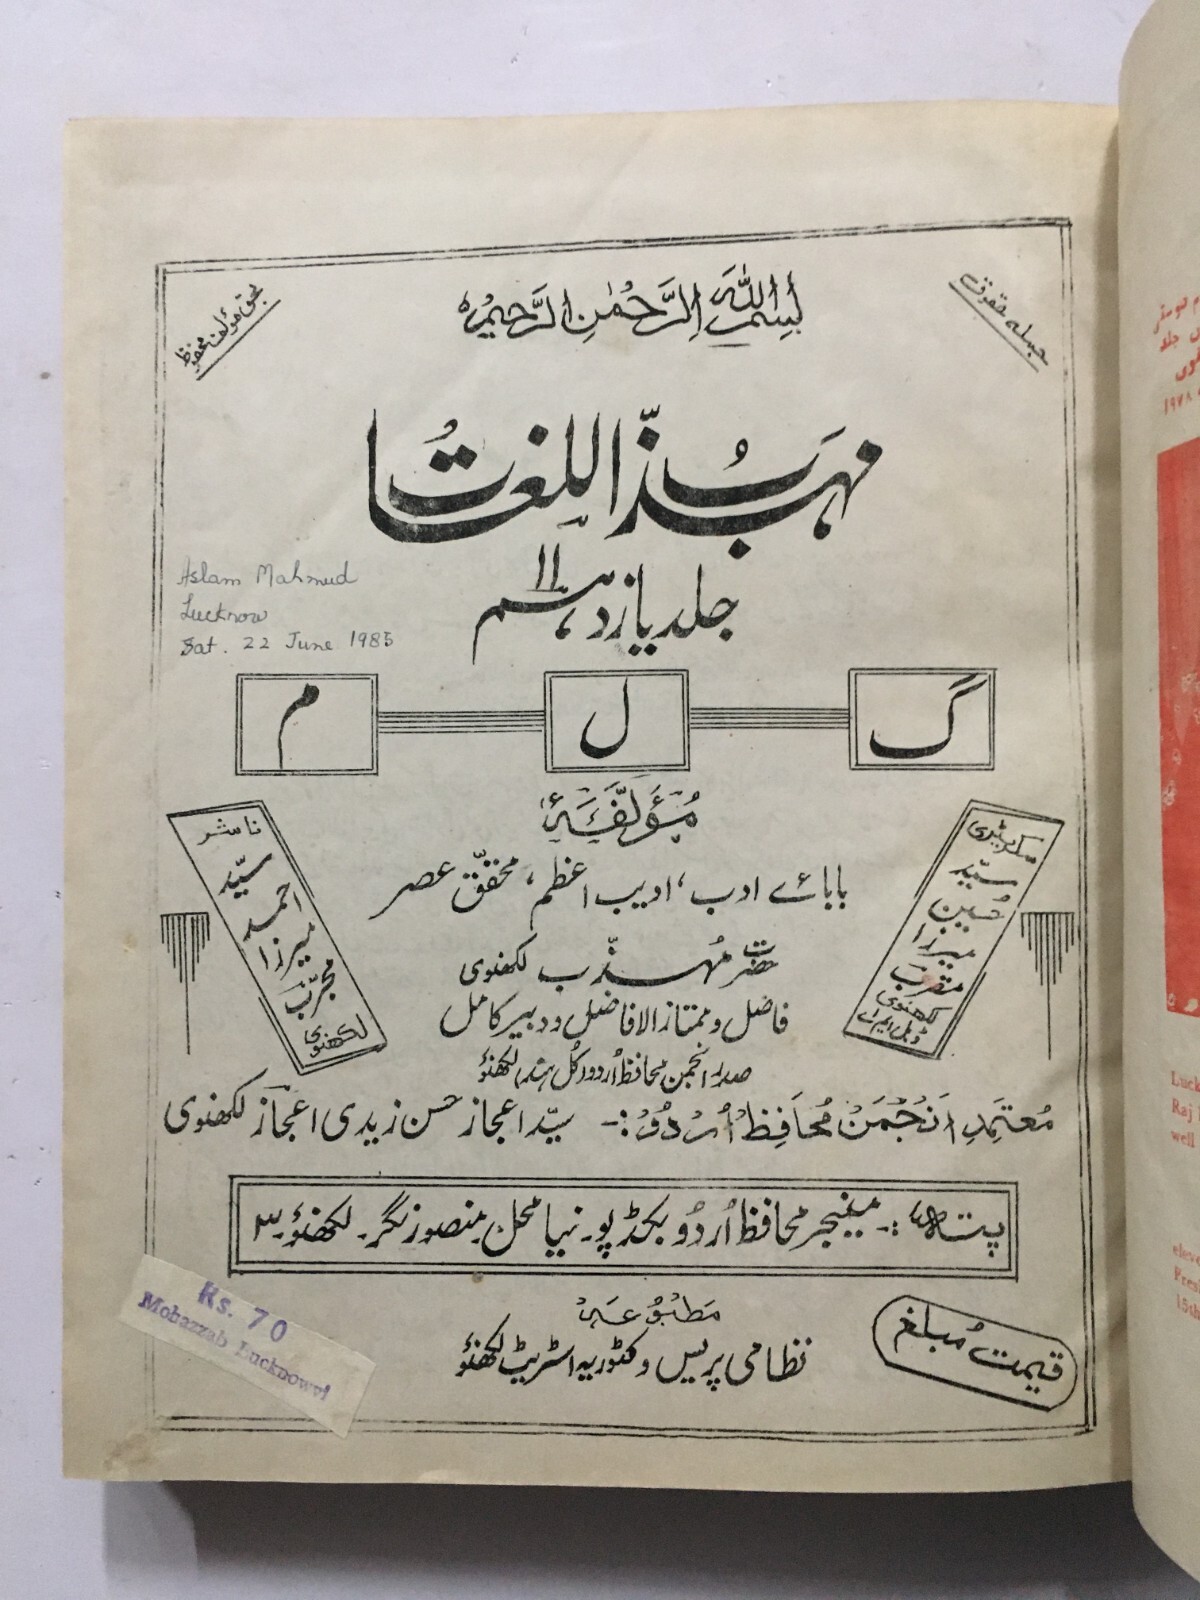 بسم اللہ الرحمٰن الرحیم
جملہ حقوق
بحق مؤلف محفوظ
مہذّب اللغات
جلد یازدہم ۱۱
Aslam Mahmud
Lucknow
Sat. 22 June 1985
گ ل م
مُؤلَّفَۂ
بابائے ادب، ادیب اعظم، محقّق عصر
حضرت مُہذّب لکھنوی
فاضل و ممتاز الافاضل و دبیر کامل
صدر انجمن محافظ اُردو (کُل ہند) لکھنؤ
سکریٹری
سیّد
حُسین
میرزا
مقرب
لکھنوی
ڈبل ایم اے
ناشر
سیّد
احمد
میرزا
مجرّب
لکھنوی
مُعتمدِ انجُمن مُحافِظ اُردُو :- سیّد اعجاز حسن زیدی اعجاز لکھنوی
پتہ :- مینیجر محافظ اُردُو بکڈپو۔ نیا محل۔ منصور نگر۔ لکھنؤ۔ ۳
مَطبُوعَہ
نظامی پریس وکٹوریہ اسٹریٹ لکھنؤ
قیمت مُبلغ
Rs. 70
Mohazzab Lucknowvi
۱۹۷۸
Luck
Raj
well
eleve
Pres
15th